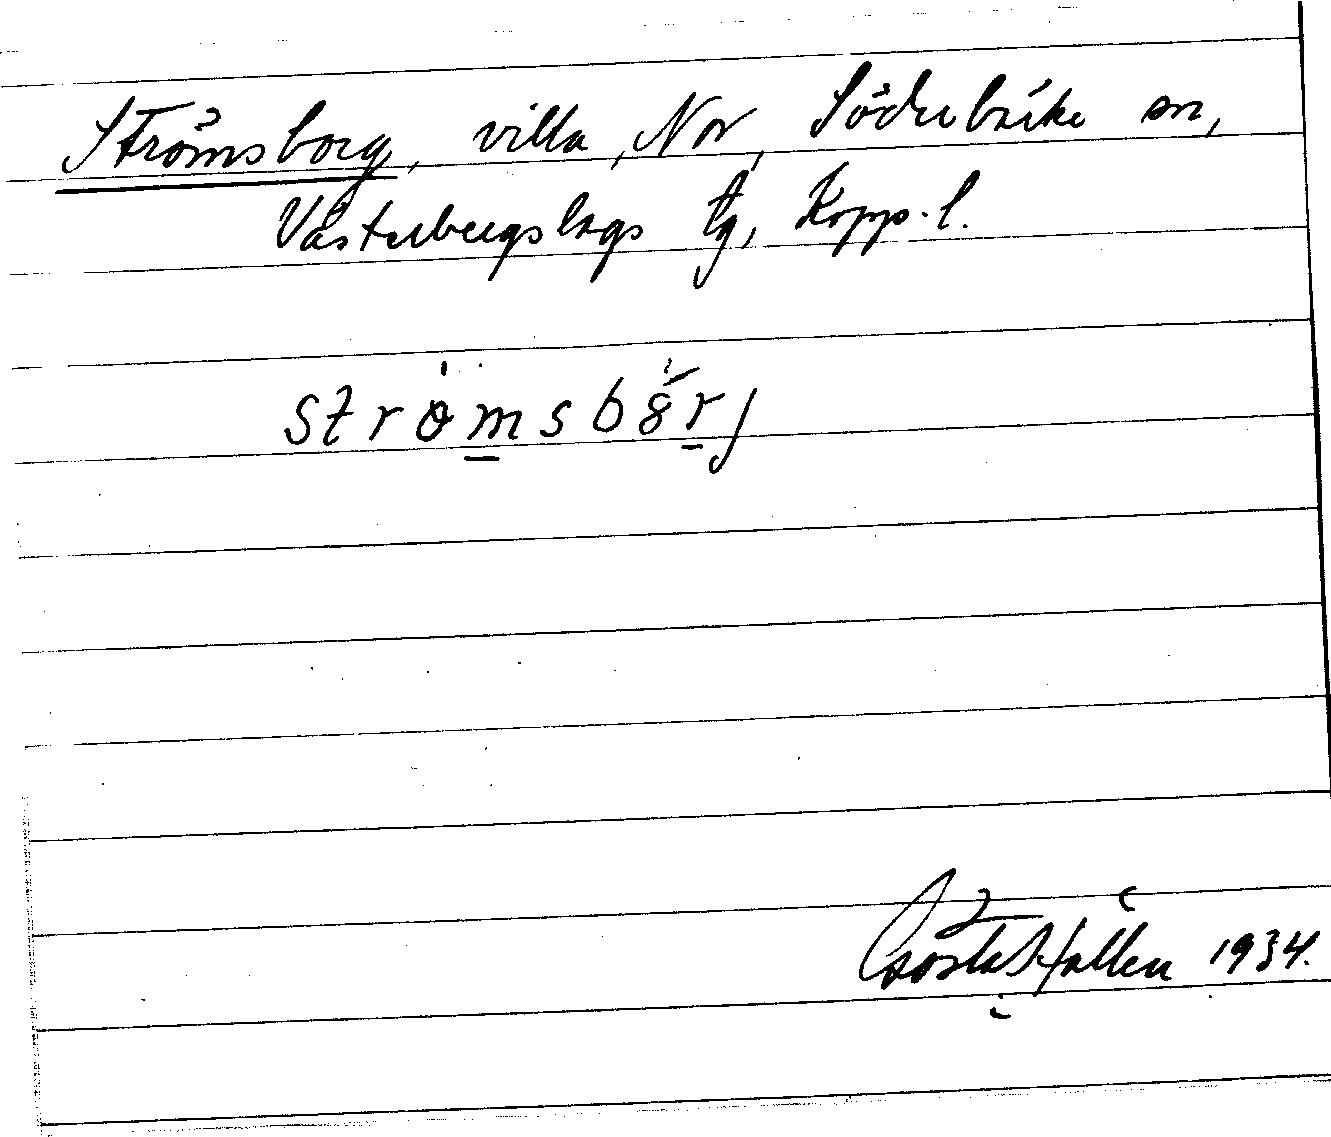 Strömsborg, villa, Nor, Söderbärke sn,
Västerbergslags tg, Kopp. l.
strömsb8rj
Gösta Hallén 1934.